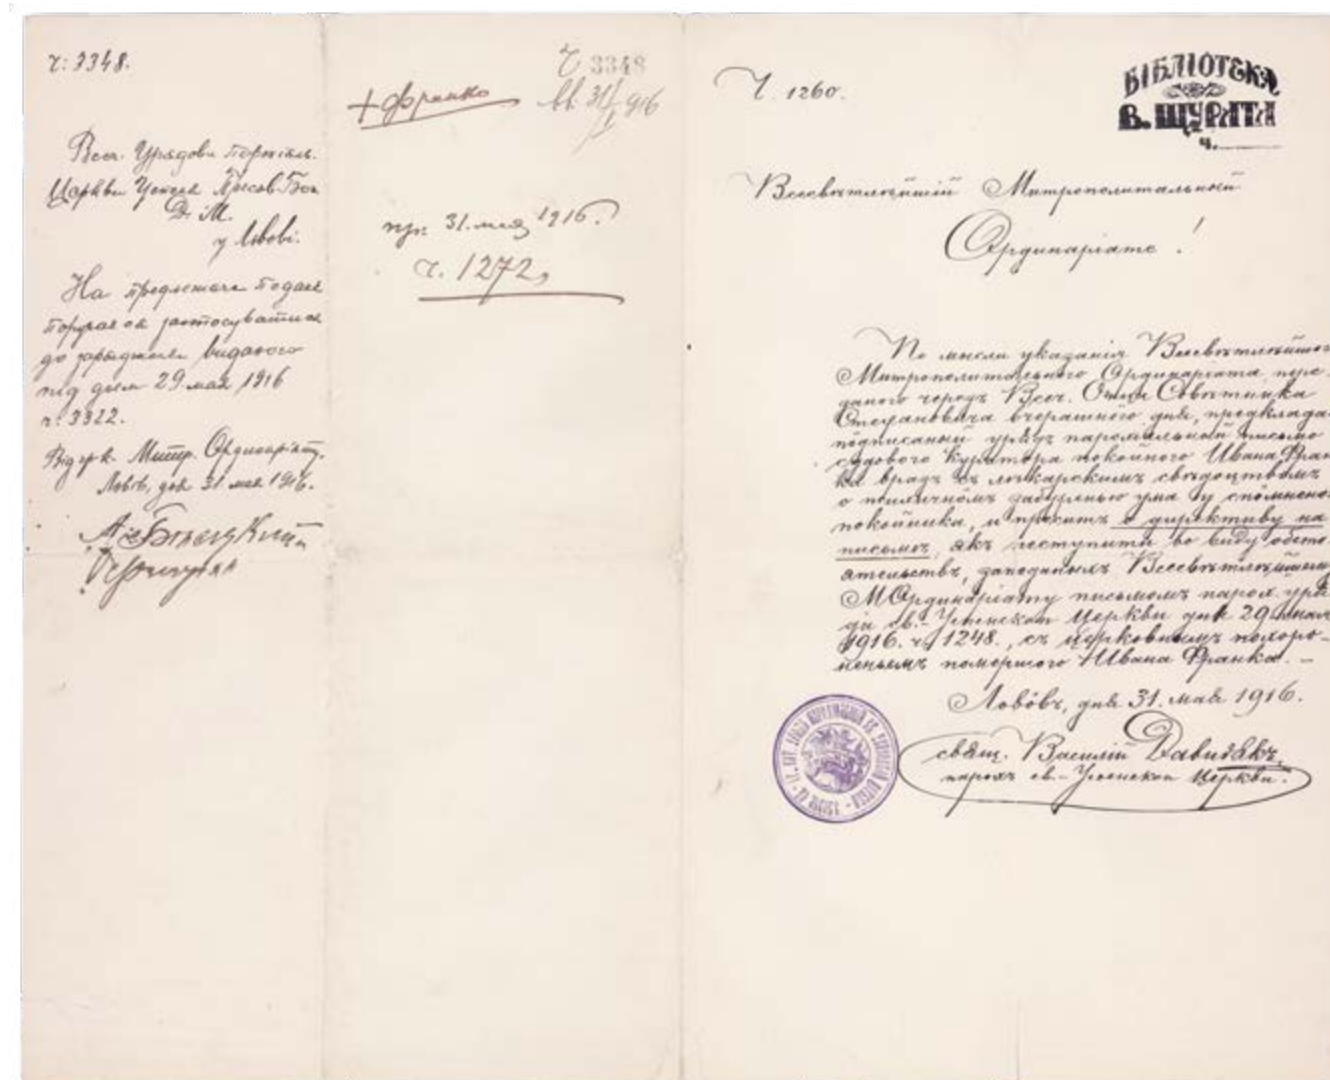 ч: 3348.
Всеч. Урядови парохіяль.
Церкви Успенія Пресв. Бог.
Д. М.
у Львові.
На предлежаче поданє
поручає ся застосуватися
до зарядженя виданого
під днем 29 мая 1916
ч: 3322.
Від гр. к. Митр. Ординаріяту.
Львів, дня 31 мая 1916.
+ Франко
Ч 3348
вв. 31/V 916
пр: 31. мая 1916.
ч. 1272,
Ч. 1260.
БІБЛІОТЕКА
В. ЩУРАТА
ч.
Всесвѣтлѣйшій Митрополитальный
Ординаріате!
По мысли указанія Всесвѣтлѣйшого
Митрополитального Ординаріата, пере-
даного черезъ Всеч. Отця Совѣтника
Стефановича вчерашного дня, предклада
подписаный урядъ парохіяльный письмо
судового куратора покойного Ивана Фран-
ка вразъ съ лѣкарскимъ свѣдоцтвомъ
о психичномъ забуреню ума у спомненого
покойника, и проситъ о директиву на
письмѣ, якъ поступити во виду обсто-
ятельствъ, заподаныхъ Всесвѣтлѣйшему
М Ординаріату письмомъ парох. уря-
да св.- Успенскои Церкви дня 29 мая
1916. ч. 1248., съ церковнымъ похоро-
неньемъ помершого + Ивана Франка. –
Львôвъ, дня 31. мая 1916.
свящ. Василій Давидякъ,
парохъ св.- Успенскои Церкви.